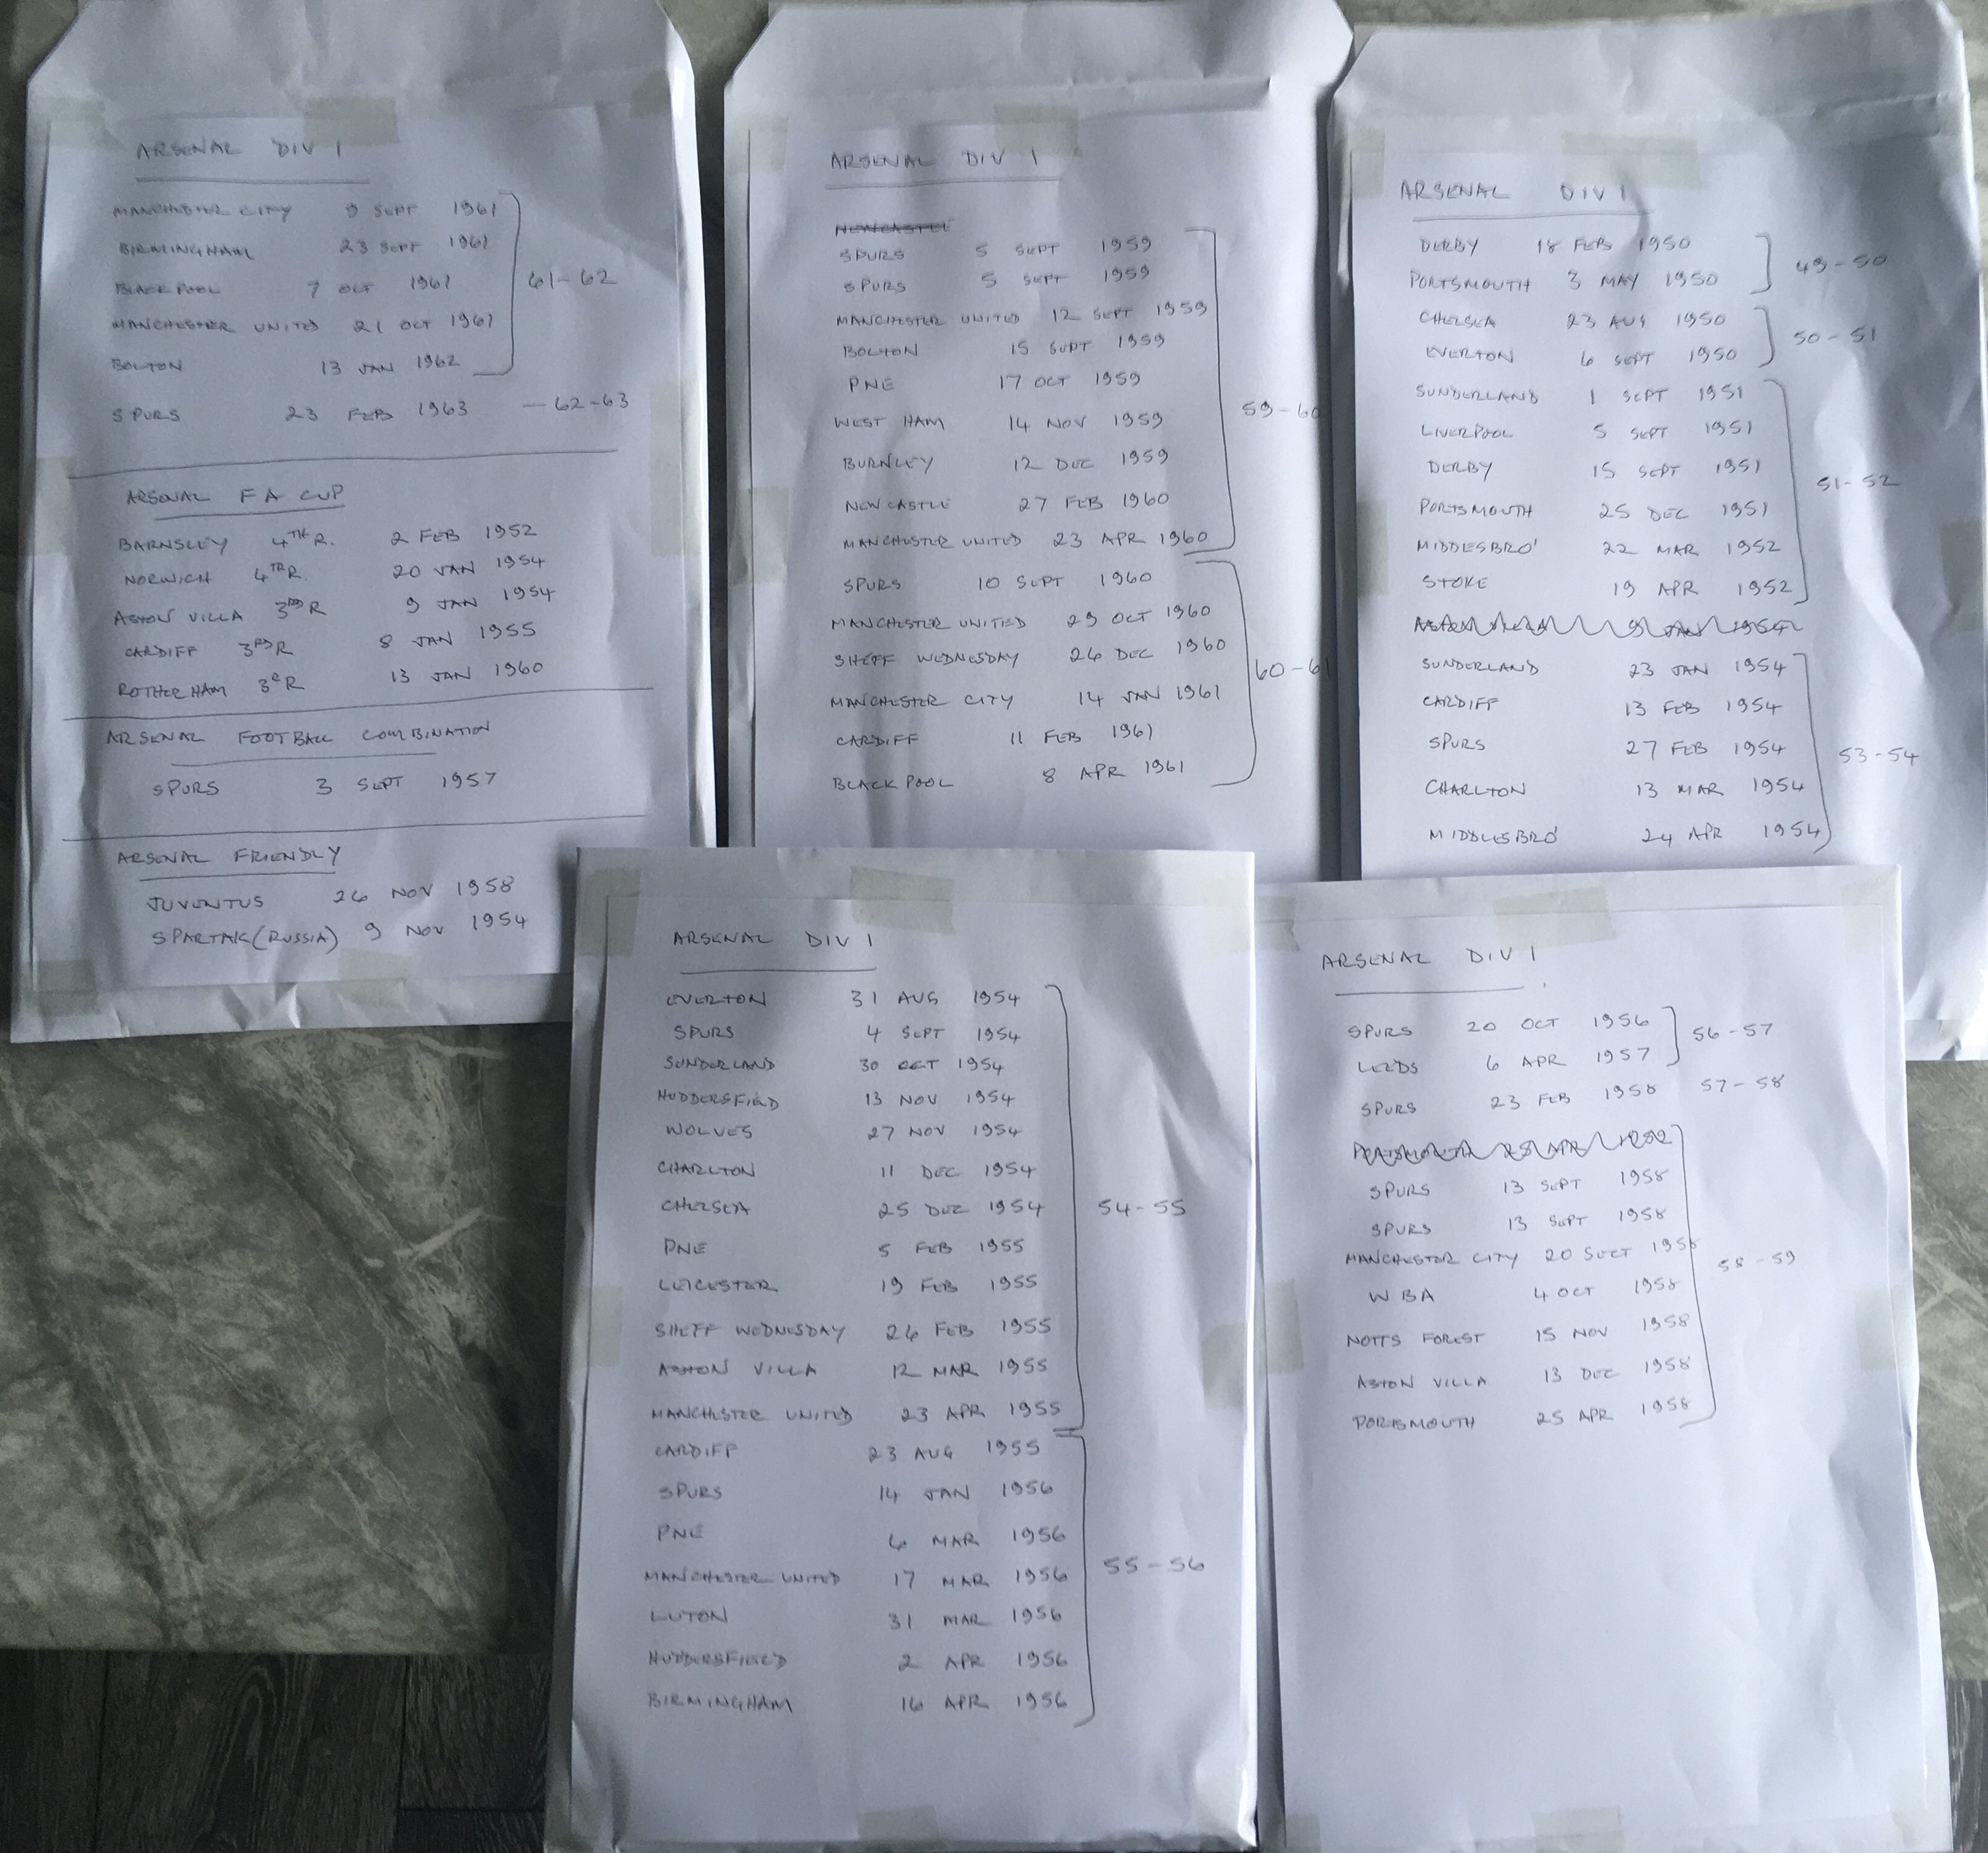 ARSENAL DIV 1
MANCHESTER CITY 9 SEPT 1961
BIRMINGHAM 23 SEPT 1961
BLACKPOOL 7 OCT 1961
61-62
MANCHESTER UNITED 21 OCT 1961
BOLTON 13 JAN 1962
SPURS 23 FEB 1963 - 62-63
ARSENAL F A CUP
BARNSLEY 4TH R. 2 FEB 1952
NORWICH 4TH R. 20 JAN 1954
ASTON VILLA 3RD R 9 JAN 1954
CARDIFF 3RD R 8 JAN 1955
ROTHERHAM 3R R 13 JAN 1960
ARSENAL FOOTBALL COMBINATION
SPURS 3 SEPT 1957
ARSENAL FRIENDLY
JUVENTUS 26 NOV 1958
SPARTAK (RUSSIA) 9 NOV 1954
ARSENAL DIV 1
NEWCASTLE
SPURS 5 SEPT 1959
SPURS 5 SEPT 1959
MANCHESTER UNITED 12 SEPT 1959
BOLTON 15 SEPT 1959
PNE 17 OCT 1959
59-60
WEST HAM 14 NOV 1959
BURNLEY 12 DEC 1959
NEWCASTLE 27 FEB 1960
MANCHESTER UNITED 23 APR 1960
SPURS 10 SEPT 1960
MANCHESTER UNITED 29 OCT 1960
SHEFF WEDNESDAY 26 DEC 1960
60-61
MANCHESTER CITY 14 JAN 1961
CARDIFF 11 FEB 1961
BLACKPOOL 8 APR 1961
ARSENAL DIV 1
DERBY 18 FEB 1950
49-50
PORTSMOUTH 3 MAY 1950
CHELSEA 23 AUG 1950
50-51
EVERTON 6 SEPT 1950
SUNDERLAND 1 SEPT 1951
LIVERPOOL 5 SEPT 1951
DERBY 15 SEPT 1951
51-52
PORTSMOUTH 25 DEC 1951
MIDDLESBRO' 22 MAR 1952
STOKE 19 APR 1952
ASTON VILLA 9 JAN 1954
SUNDERLAND 23 JAN 1954
CARDIFF 13 FEB 1954
SPURS 27 FEB 1954
53-54
CHARLTON 13 MAR 1954
MIDDLESBRO' 24 APR 1954
ARSENAL DIV 1
EVERTON 31 AUG 1954
SPURS 4 SEPT 1954
SUNDERLAND 30 OCT 1954
HUDDERSFIELD 13 NOV 1954
WOLVES 27 NOV 1954
CHARLTON 11 DEC 1954
CHELSEA 25 DEC 1954
54-55
PNE 5 FEB 1955
LEICESTER 19 FEB 1955
SHEFF WEDNESDAY 26 FEB 1955
ASTON VILLA 12 MAR 1955
MANCHESTER UNITED 23 APR 1955
CARDIFF 23 AUG 1955
SPURS 14 JAN 1956
PNE 6 MAR 1956
55-56
MANCHESTER UNITED 17 MAR 1956
LUTON 31 MAR 1956
HUDDERSFIELD 2 APR 1956
BIRMINGHAM 16 APR 1956
ARSENAL DIV 1
SPURS 20 OCT 1956
56-57
LEEDS 6 APR 1957
SPURS 23 FEB 1958 57-58
PORTSMOUTH 25 APR
SPURS 13 SEPT 1958
SPURS 13 SEPT 1958
MANCHESTER CITY 20 SEPT 1958
58-59
WBA 4 OCT 1958
NOTTS FOREST 15 NOV 1958
ASTON VILLA 13 DEC 1958
PORTSMOUTH 25 APR 1958